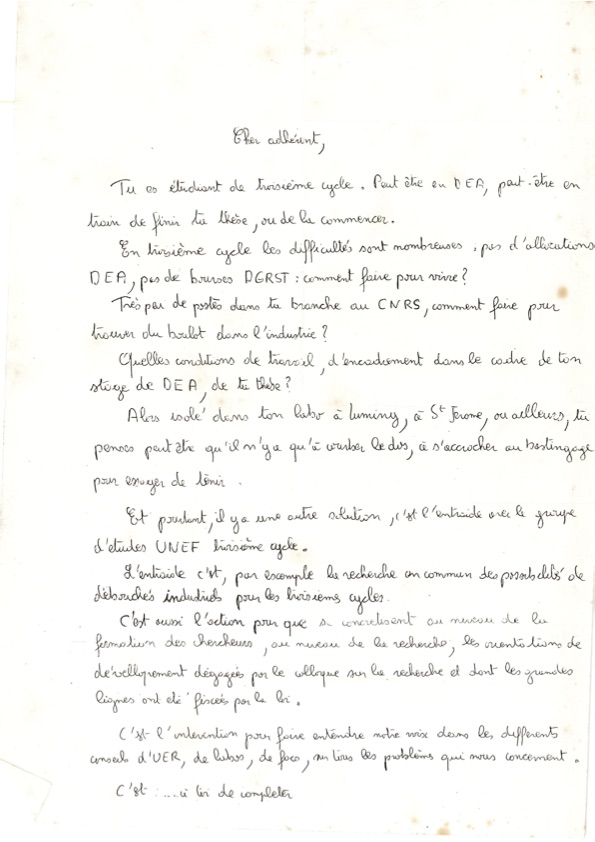 Cher adhérent,
Tu es étudiant de troisième cycle. Peut être en DEA, peut-être en
train de finir ta thèse, ou de la commencer.
En troisième cycle les difficultés sont nombreuses : pas d'allocations
DEA, pas de bourses DGRST : comment faire pour vivre ?
Très peu de postes dans ta branche au CNRS, comment faire pour
trouver du boulot dans l'industrie ?
Quelles conditions de travail, d'encadrement dans le cadre de ton
stage de DEA, de ta thèse ?
Alors isolé dans ton labo à Luminy, à St Jerome, ou ailleurs, tu
penses peut être qu'il n'y a qu'à courber le dos, à s'accrocher au bastingage
pour essayer de tenir.
Et pourtant, il y a une autre solution, c'est l'entraide avec le groupe
d'études UNEF troisième cycle.
L'entraide c'est, par exemple la recherche en commun des possibilités de
débouchés industriels pour les troisièmes cycles.
C'est aussi l'action pour que se concrétisent au niveau de la
formation des chercheurs, au niveau de la recherche, les orientations de
dévellopement dégagées par le colloque sur la recherche et dont les grandes
lignes ont été fixées par la loi.
C'est l'intervention pour faire entendre notre voix dans les differents
conseils d'UER, de labos, de facs, sur tous les problèmes qui nous concernent.
C'est : .... à toi de completer